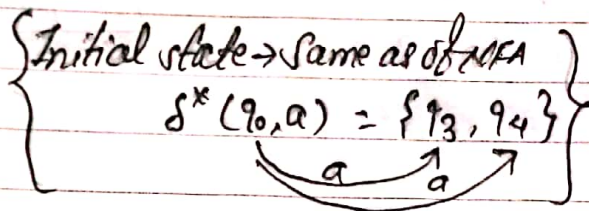 Initial state → Same as of NFA
δ* (q0, a) = {q3, q4}
a a